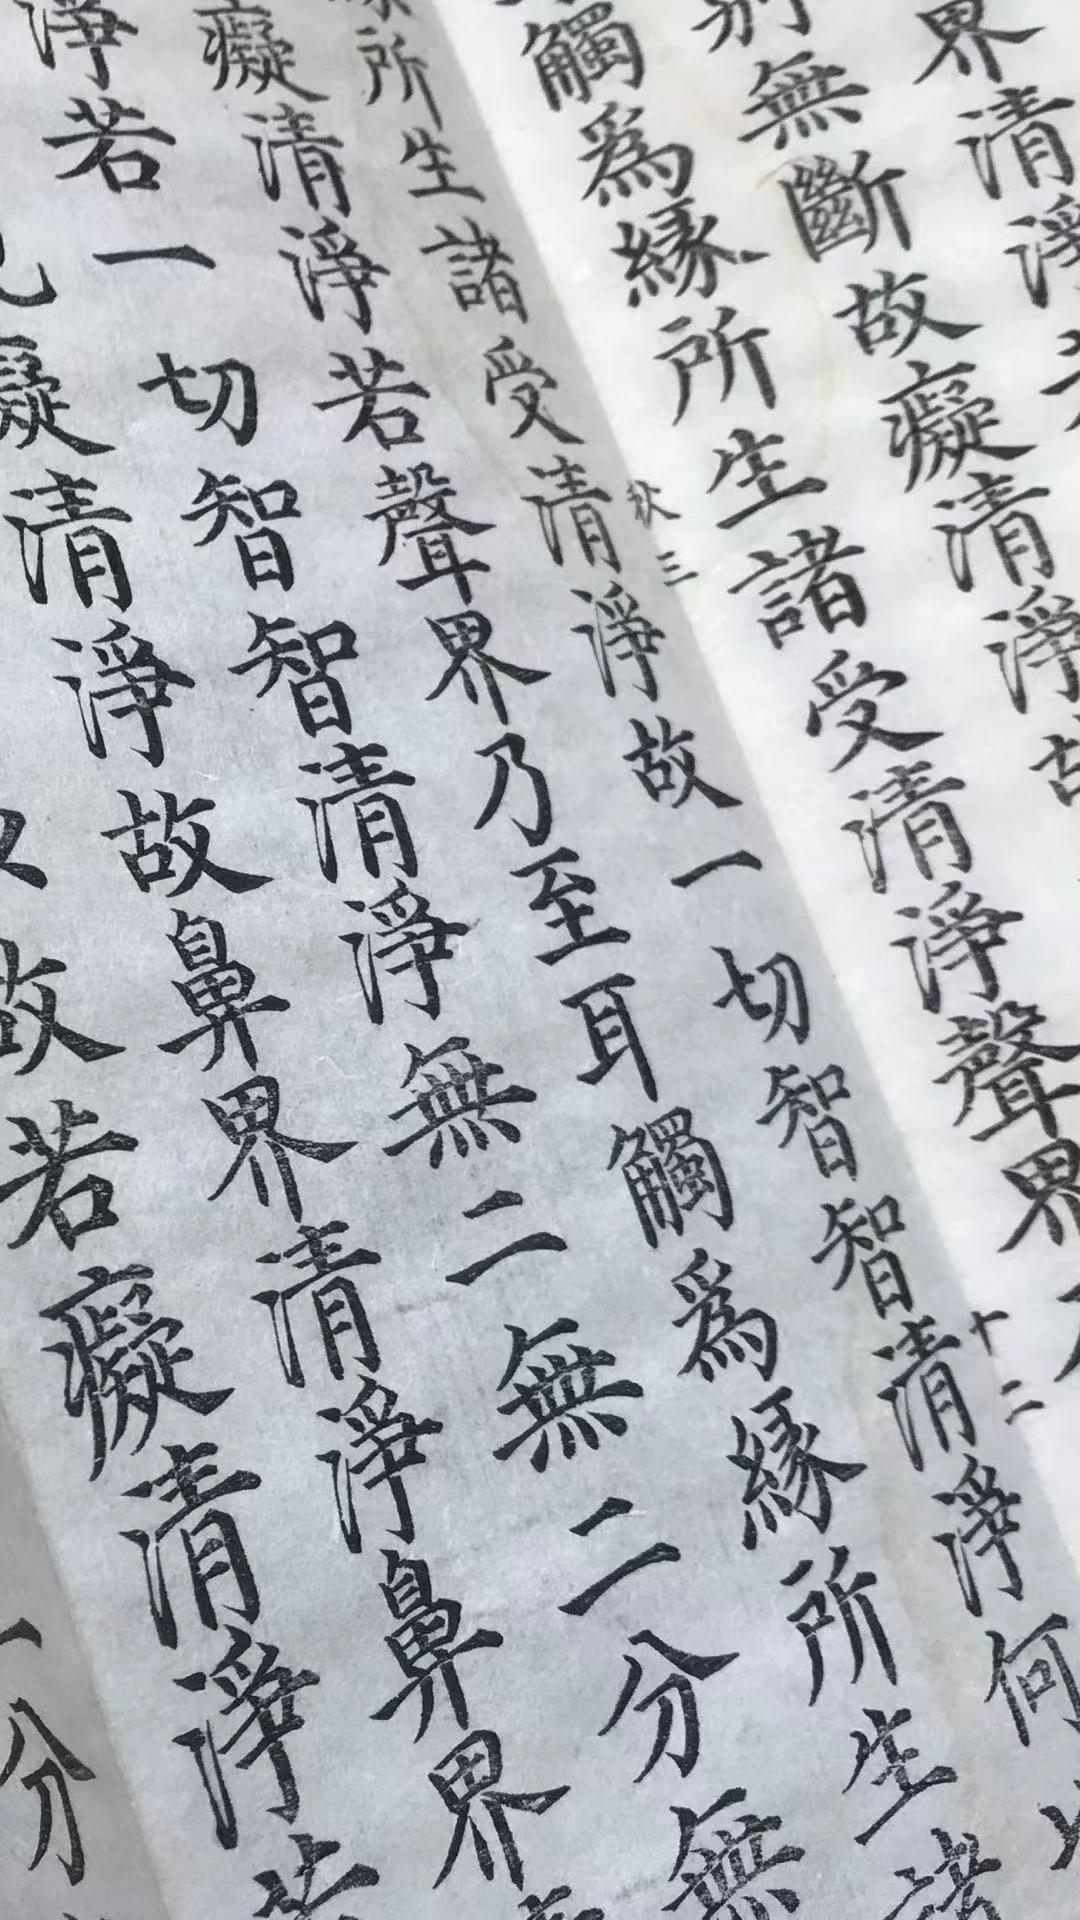 界清淨
別無斷故癡清淨故
觸爲緣所生諸受清淨聲界乃
秋三 十二
緣所生諸受清淨故一切智智清淨何以
癡清淨若聲界乃至耳觸爲緣所生諸
淨若一切智智清淨無二無二分無
癡清淨故鼻界清淨鼻界
以故若癡清淨若
分